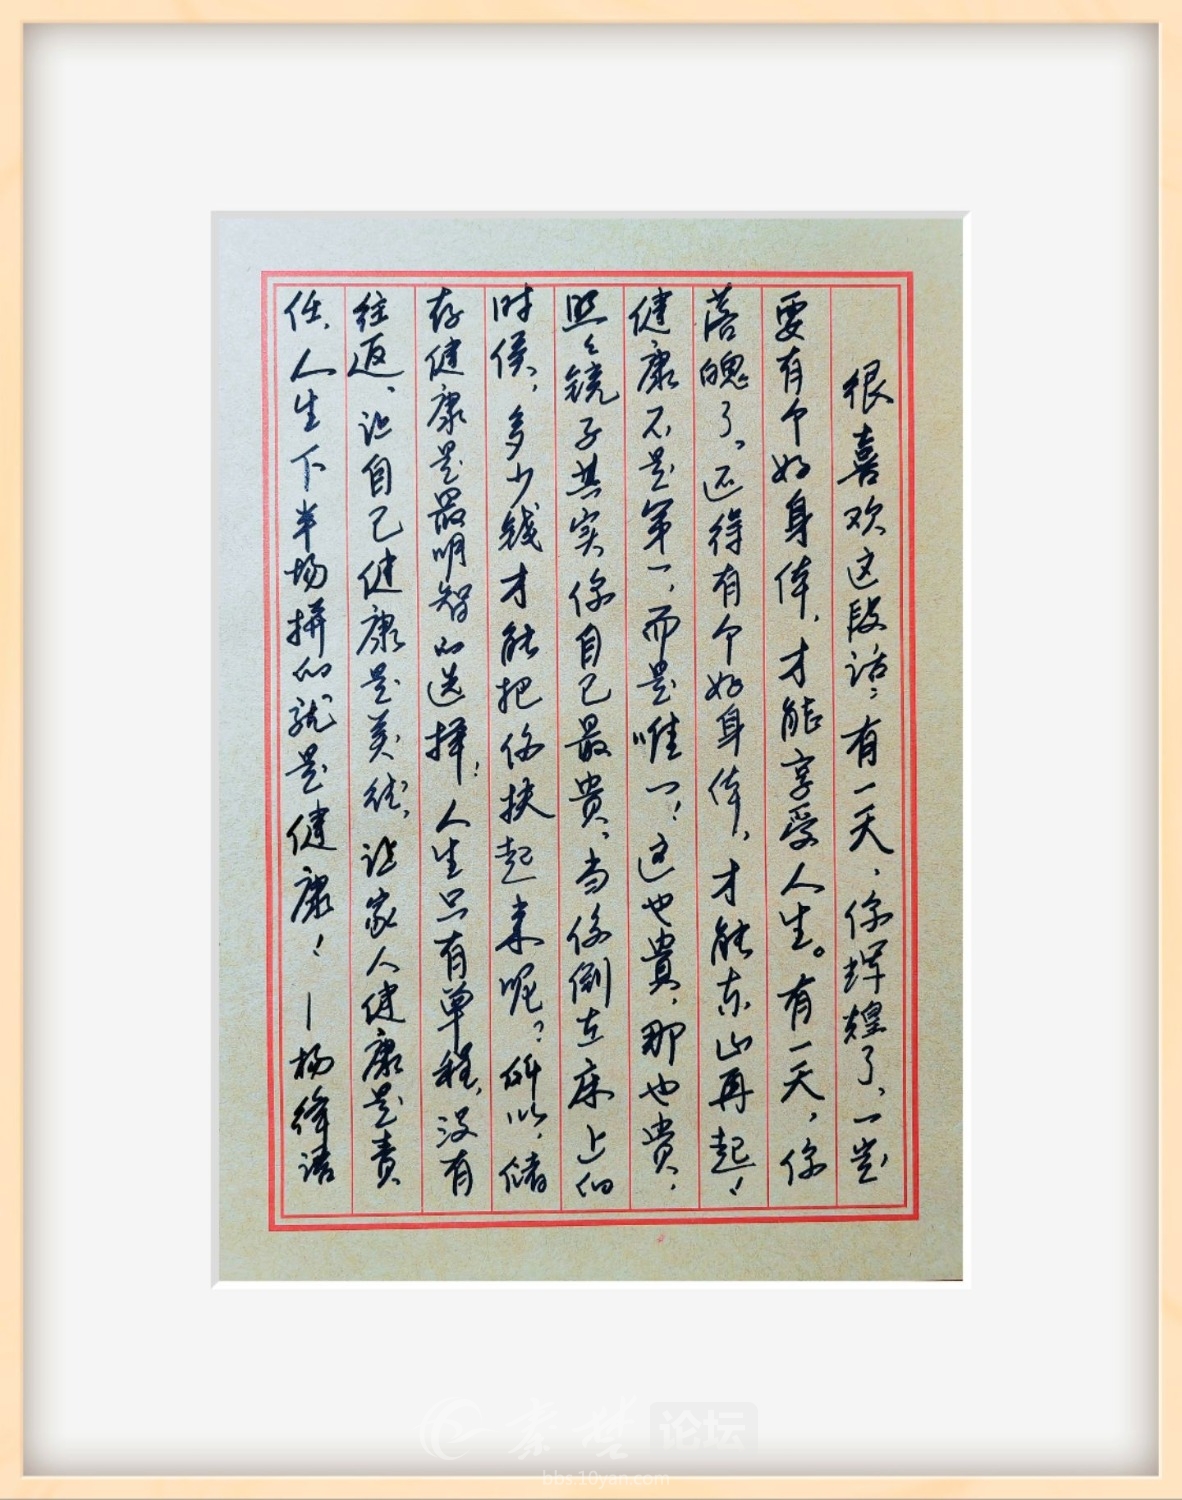 很喜欢这段话：有一天，你辉煌了，一定
要有个好身体，才能享受人生。有一天，你
落魄了，还得有个好身体，才能东山再起！
健康不是第一，而是唯一！这也贵，那也贵，
照々镜子其实你自己最贵，当你倒在床上的
时候，多少钱才能把你扶起来呢？所以，储
存健康是最明智的选择！人生只有单程，没有
往返、让自己健康是美德，让家人健康是责
任，人生下半场拼的就是健康！—杨绛语
秦楚论坛
bbs.10yan.com